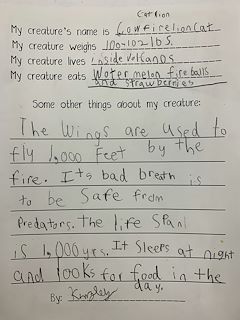 Cat lion
My creature's name is Cow fire lion Cat
My creature weighs 100-102 lbs.
My creature lives inside volcanos
My creature eats Water melon fire balls
and strawberries
Some other things about my creature:
The wings are used to
fly 1,000 feet by the
fire. Its bad breath is
to be safe from
Predators. the life span
is 1,000 yrs. It sleeps at night
and looks for food in the
day.
By: Kingley